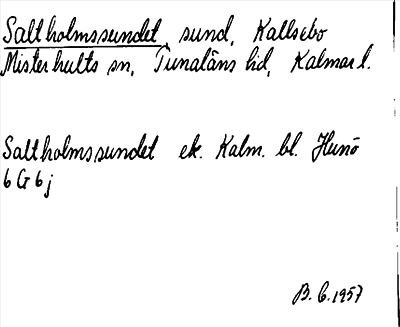 Saltholmssundet, sund, Kallsebo
Misterhults sn, Tunaläns hd, Kalmar l.
Saltholmssundet ek. Kalm. bl. Hunö
6 G 6 j
B. G. 1957